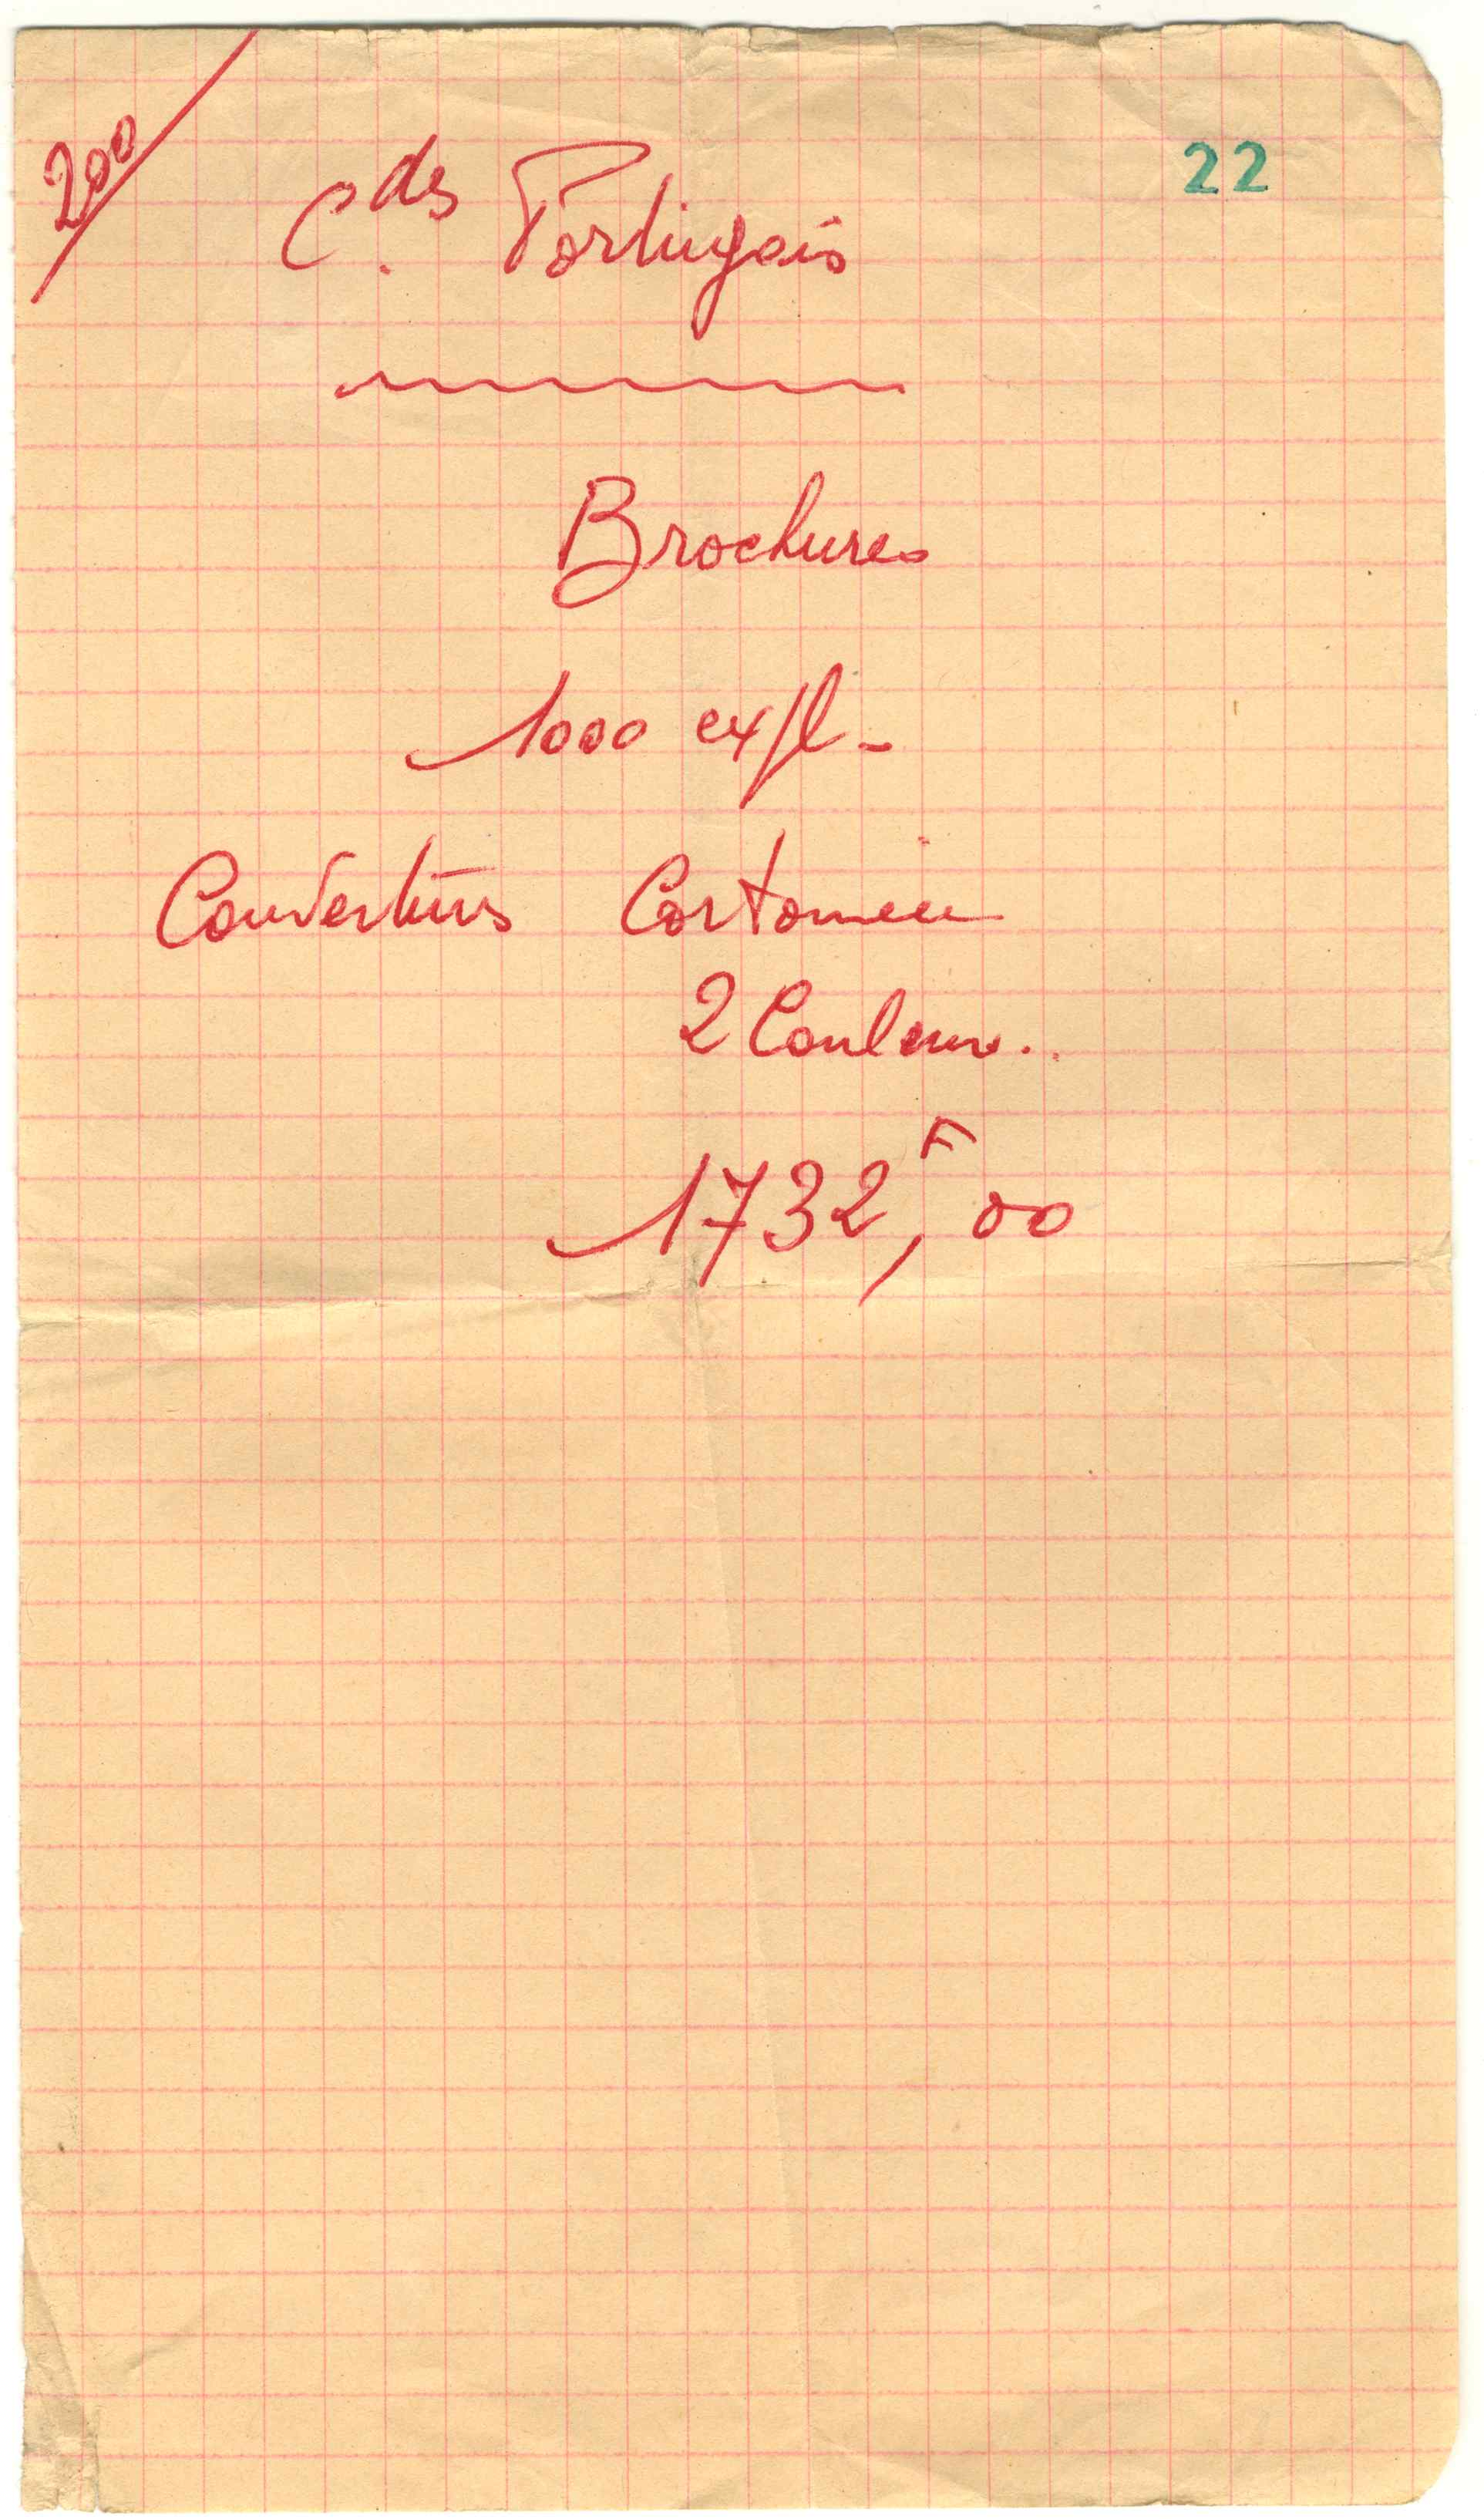 200
22
C.des Portugais
Brochures
1000 expl-
Couvertures Cartonnée
2 Couleurs.
1732,F00